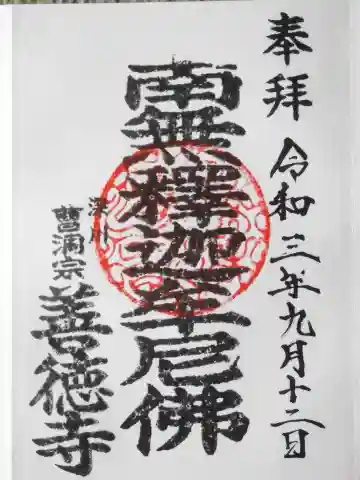 奉拝
令和三年九月十二日
南無釋迦牟尼佛
深川
曹洞宗
善徳寺